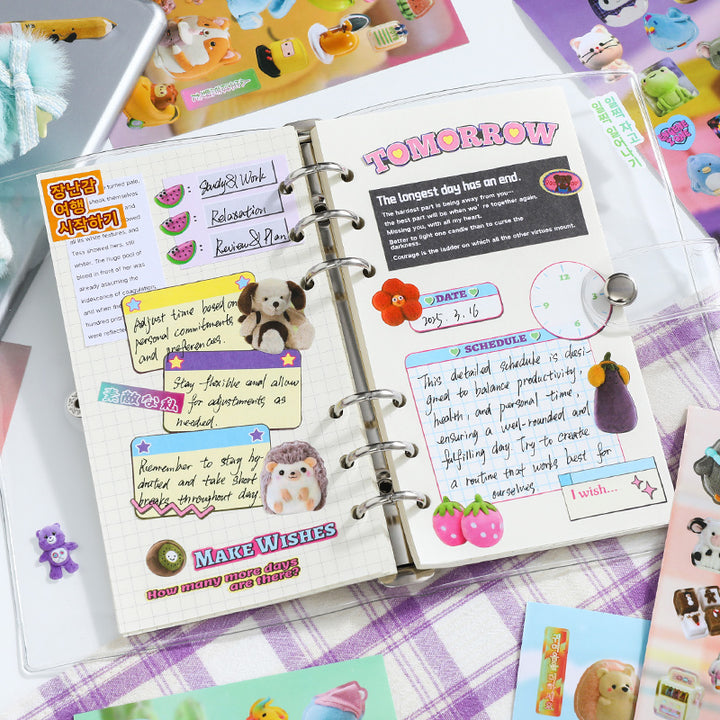 장난감
여행
시작하기
turned pale,
shook themselves
all its white features, and
Tess showed hers, still
white. The huge pool of
blood in front of her was
already assuming the
iridescence of coagulation
and when the
hundred
were reflected
Study & Work
Relaxation
Review & Plan
Adjust time based on
personal commitments
and preferences.
Stay flexible and allow
for adjustments as
needed.
素敵な私
Remember to stay hy-
drated and take short
breaks throughout day.
MAKE WISHES
How many more days
are there?
TOMORROW
The longest day has an end.
The hardest part is being away from you...
the best part will be when we're together again.
Missing you, with all my heart.
Better to light one candle than to curse the
darkness.
Courage is the ladder on which all the other virtues mount.
DATE
2025. 3. 16
12
3
6
9
SCHEDULE
This detailed schedule is desi-
gned to balance productivity,
health, and personal time,
ensuring a well-rounded and
fulfilling day. Try to create
a routine that works best for
ourselves.
I wish...
일찍 자고
일찍 일어나기